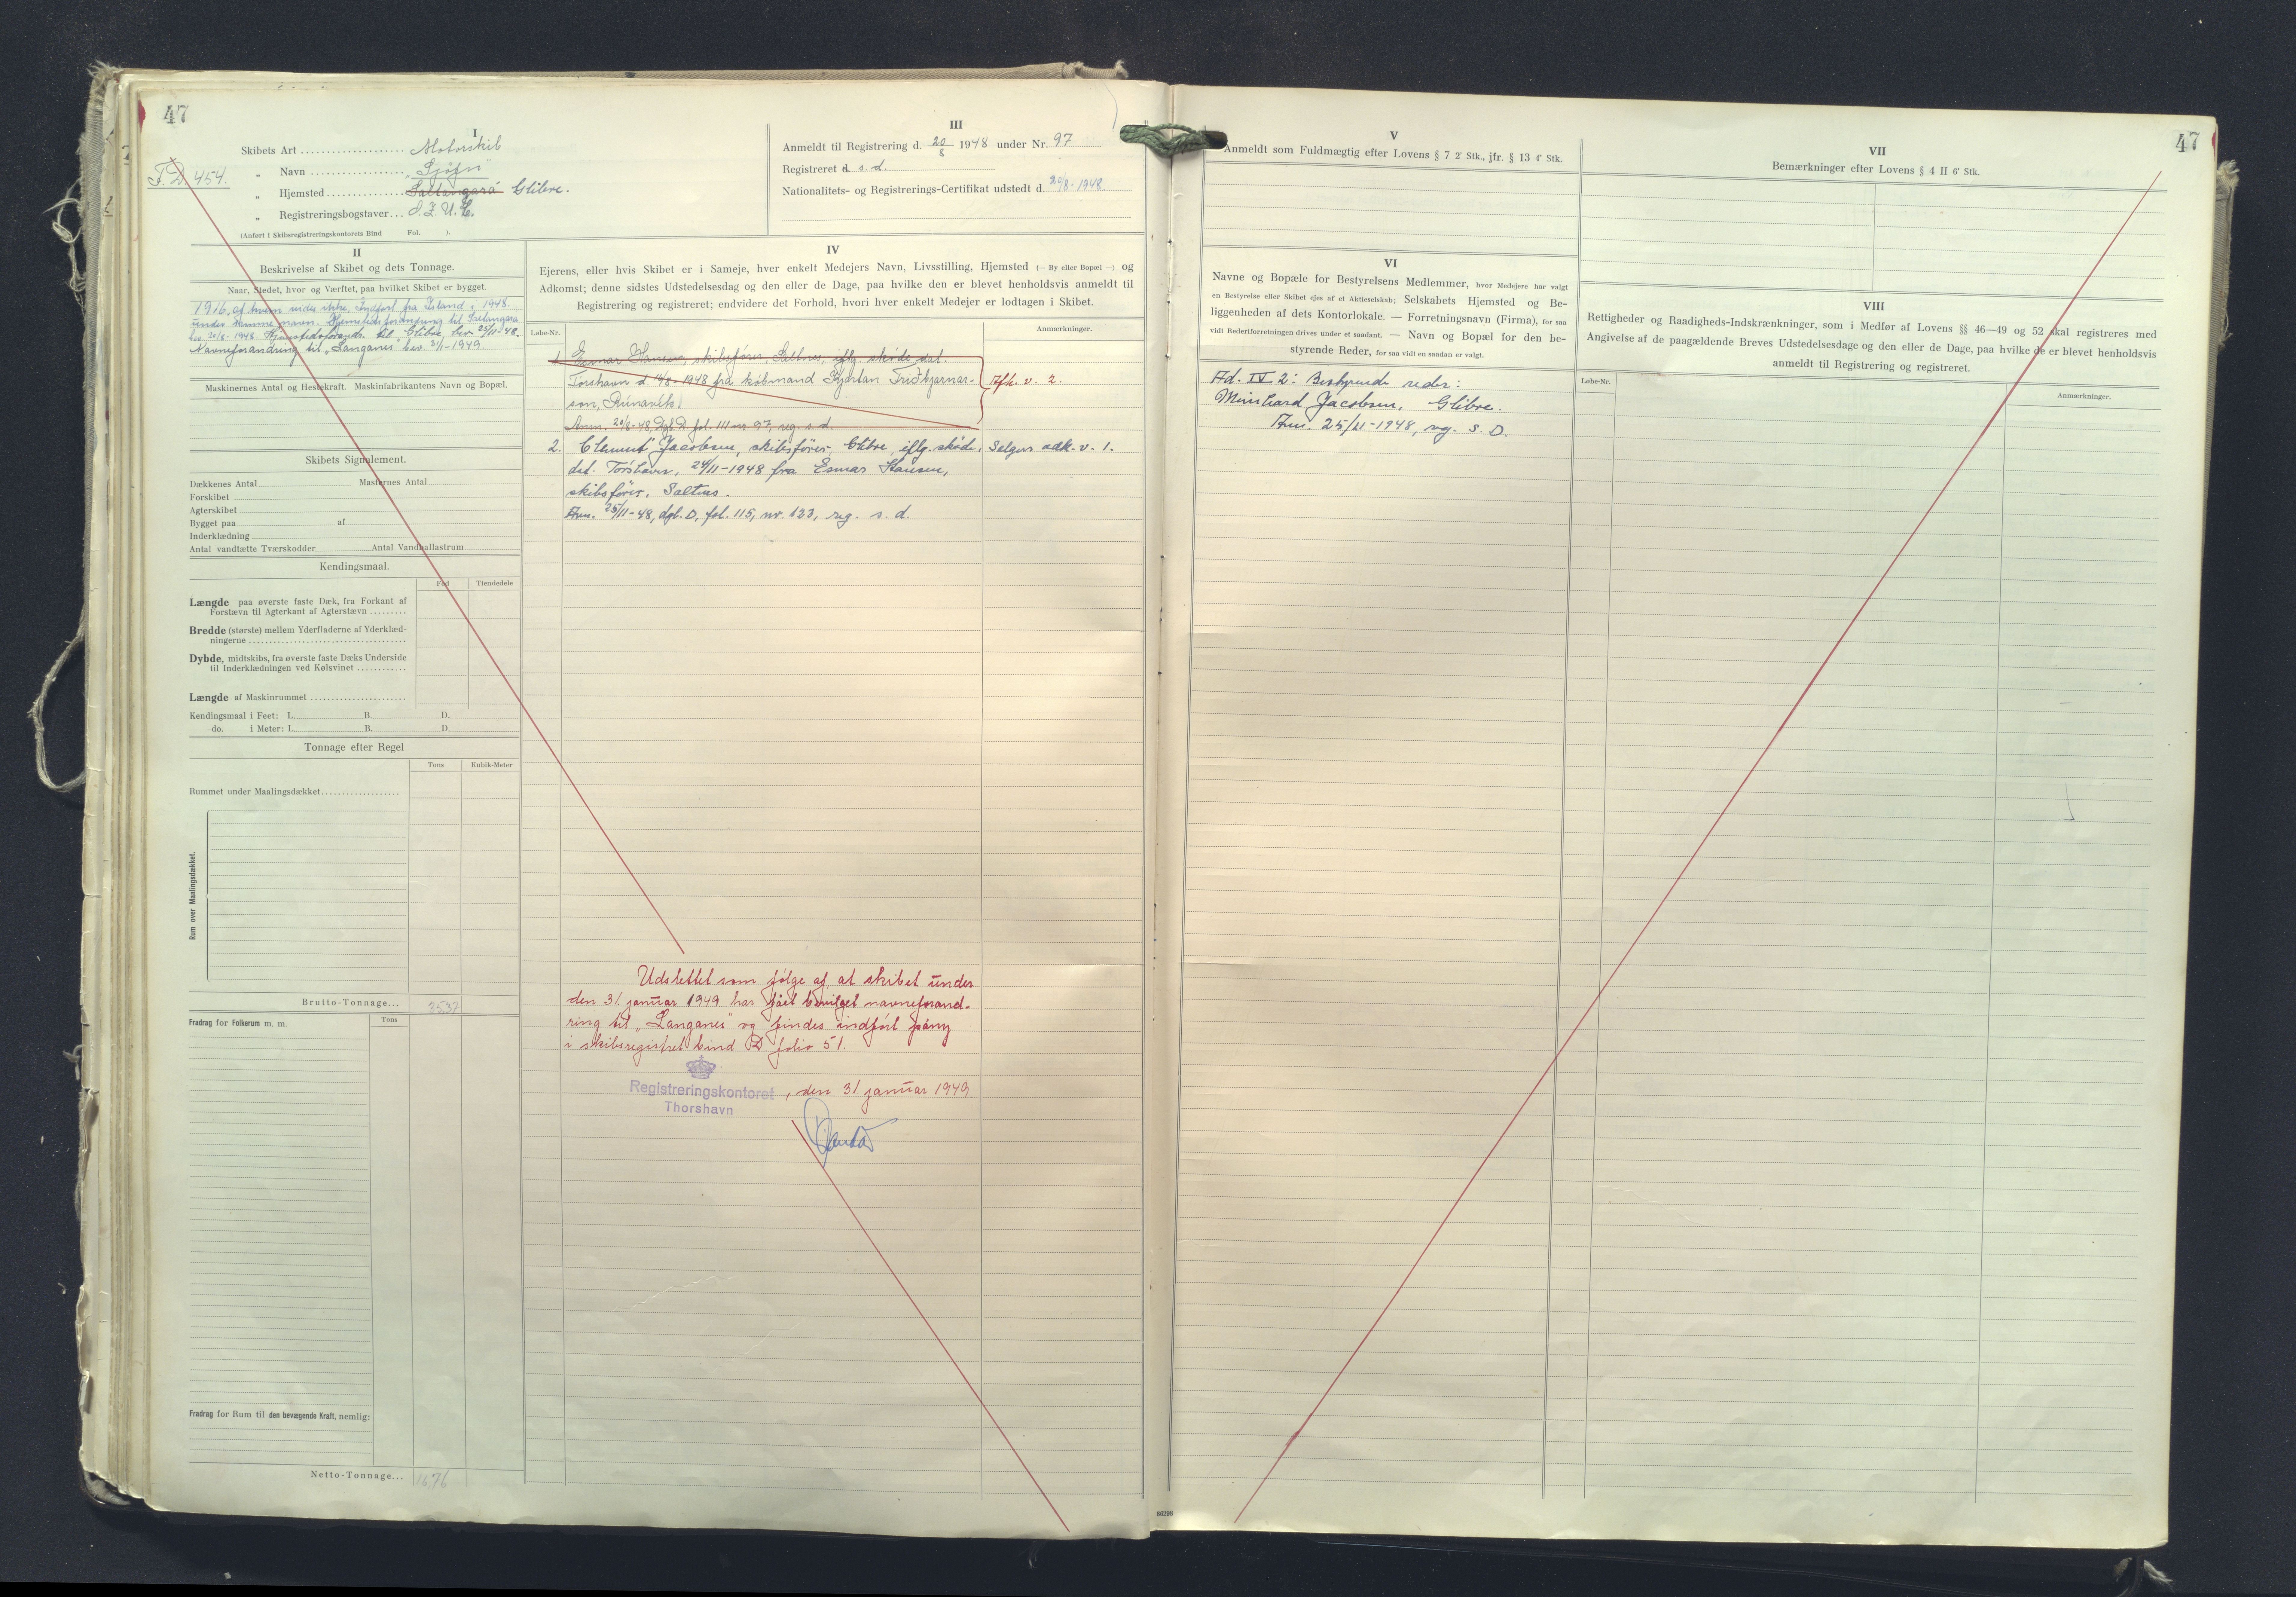 47
I
Skibets Art .................... Motorskib
F.D. 454.
„ Navn .................... „Sjøfn“
„ Hjemsted .................... Saltangará Glibre.
„ Registreringsbogstaver...
(Anført i Skibsregistreringskontorets Bind Fol. ).
III
Anmeldt til Registrering d. 20/8 1948 under Nr. 97
Registreret d s. d.
Nationalitets- og Registrerings-Certifikat udstedt d. 20/8-1948
II
Beskrivelse af Skibet og dets Tonnage.
Naar, Stedet, hvor og Værftet, paa hvilket Skibet er bygget.
1916, af hvem vides ikke. Indført fra Island i 1948
under samme navn. Hjemstedsforandring til
Navneforandring til „Langanes“ bev. 31/1-1949.
Maskinernes Antal og Hestekraft. Maskinfabrikantens Navn og Bopæl.
Skibets Signalement.
Dækkenes Antal Masternes Antal
Forskibet
Agterskibet
Bygget paa af
Inderklædning
Antal vandtætte Tværskodder Antal Vandballastrum
Kendingsmaal.
Fod Tiendedele
Længde paa øverste faste Dæk, fra Forkant af
Forstævn til Agterkant af Agterstævn .........
Bredde (største) mellem Yderfladerne af Yderklæd-
ningerne ....................................
Dybde, midtskibs, fra øverste faste Dæks Underside
til Inderklædningen ved Kølsvinet ............
Længde af Maskinrummet ......................
Kendingsmaal i Feet: L. B. D.
do. i Meter: L. B. D.
Tonnage efter Regel
Tons Kubik-Meter
Rummet under Maalingsdækket...................
Rum over Maalingsdækket.
Brutto-Tonnage... 25.37
Fradrag for Folkerum m. m. Tons
Fradrag for Rum til den bevægende Kraft, nemlig:
Netto-Tonnage... 16.76
IV
Ejerens, eller hvis Skibet er i Sameje, hver enkelt Medejers Navn, Livsstilling, Hjemsted (— By eller Bopæl —) og
Adkomst; denne sidstes Udstedelsesdag og den eller de Dage, paa hvilke den er blevet henholdsvis anmeldt til
Registrering og registreret; endvidere det Forhold, hvori hver enkelt Medejer er lodtagen i Skibet.
Løbe-Nr. Anmærkninger.
1. Esmar Hansen, skibsfører, Saltnes, iflg. skøde dat.
Torshavn d. 14/8-1948 fra købmand Kjartan Friðbjarnar- Afh. v. 2.
son, Rúnavík.
Anm. 20/8-48, Dgb. D. fol. 111 nr. 97, reg. s. d.
2. Clement Jacobsen, skibsfører, Glibre, iflg. skøde, Sælgers adk. v. 1.
dat. Torshavn, 24/11-1948 fra Esmar Hansen,
skibsfører, Saltnes.
Anm. 25/11-48, dgb. D, fol. 115, nr. 123, reg. s. d.
Udslettet som følge af, at skibet under
den 31. januar 1949 har fået bevilget navneforand-
ring til „Langanes“ og findes indført påny
i skibsregistret bind D folio 51.
Registreringskontoret
Thorshavn
, den 31 januar 1949
47
V
Anmeldt som Fuldmægtig efter Lovens § 7 2' Stk., jfr. § 13 4' Stk.
VI
Navne og Bopæle for Bestyrelsens Medlemmer, hvor Medejere har valgt
en Bestyrelse eller Skibet ejes af et Aktieselskab; Selskabets Hjemsted og Be-
liggenheden af dets Kontorlokale. — Forretningsnavn (Firma), for saa
vidt Rederiforretningen drives under et saadant. — Navn og Bopæl for den be-
styrende Reder, for saa vidt en saadan er valgt.
Ad. IV 2: Bestyrende reder:
Meinhard Jacobsen, Glibre.
Anm. 25/11-1948, reg. s. D.
VII
Bemærkninger efter Lovens § 4 II 6' Stk.
VIII
Rettigheder og Raadigheds-Indskrænkninger, som i Medfør af Lovens §§ 46—49 og 52 skal registreres med
Angivelse af de paagældende Breves Udstedelsesdag og den eller de Dage, paa hvilke de er blevet henholdsvis
anmeldt til Registrering og registreret.
Løbe-Nr. Anmærkninger.